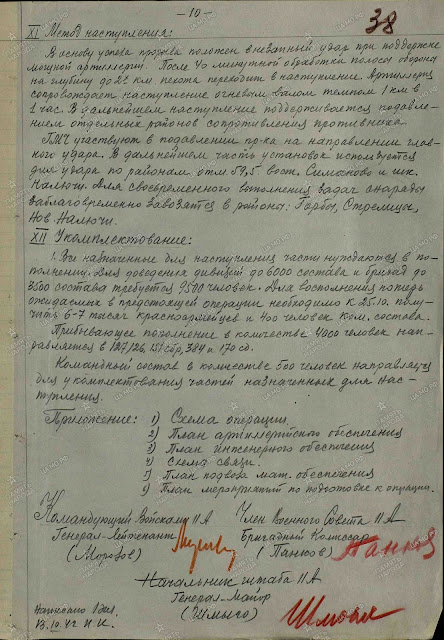 - 10 -
38
XI Метод наступления:
В основу успеха прорыва положен внезапный удар при поддержке
мощной артиллерии. После 40 минутной обработки полосы обороны
на глубину до 2х км пехота переходит в наступление. Артиллерия
сопровождает наступление огневым валом темпом 1 км в
1 час. В дальнейшем наступление поддерживается подавле-
нием отдельных районов сопротивления противника.
ГМЧ участвуют в подавлении пр-ка на направлении глав-
ного удара. В дальнейшем часть установок используется
для удара по районам отм 59,5 вост. Симаново и
Налючи. Для своевременного выполнения задач снаряды
заблаговременно завозятся в района: Горбы, Стрелицы,
Нов. Налючи.
XII Укомплектование:
1. Все назначенные для наступления части нуждаются в по-
полнении. Для доведения дивизий до 6000 состава и бригад до
3500 состава требуется 9500 человек. Для восполнения потерь
ожидаемых в предстоящей операции необходимо к 25.10. полу-
чить 6-7 тысяч красноармейцев и 400 человек ком. состава.
Прибывающее пополнение в количестве 4000 человек нап-
равляется в 127, 126, 151 сбр, 384 и 170 сд.
Командный состав в количестве 500 человек направляется
для укомплектования частей назначенных для нас-
тупления.
Приложение: 1) Схема операции
2) План артиллерийского обеспечения
3) План инженерного обеспечения
4) Схема связи.
5) План подвоза мат. обеспечения
6) План мероприятий по подготовке к операции.
Командующий Войсками 11 А Член Военного Совета 11 А
Генерал-Лейтенант Бригадный Комиссар
(Морозов) (Панков) Панков
Начальник штаба 11 А
Генерал-Майор
(Шмыго) Шмыго
Написано 1 экз.
13.10.42